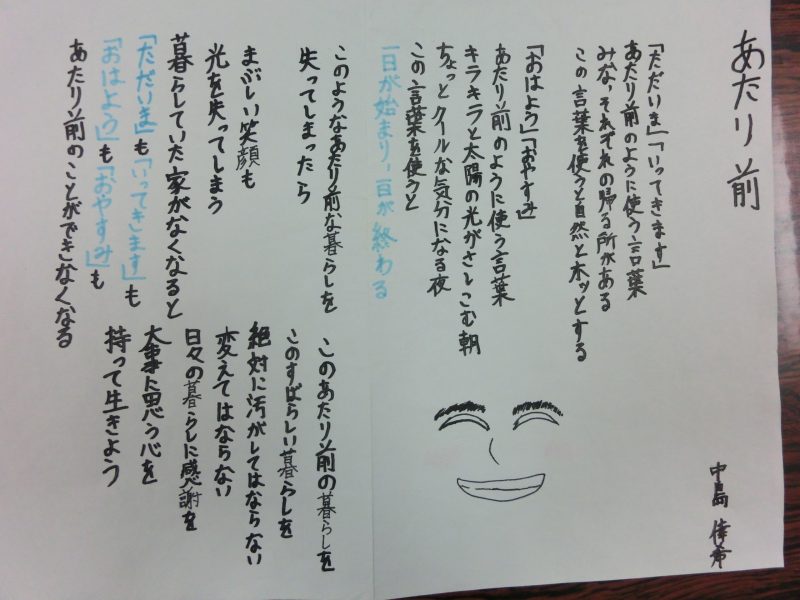 あたり前
中島
「ただいま」「いってきます」
あたり前のように使う言葉
みな、それぞれの帰る所がある
この言葉を使うと自然とホッとする
「おはよう」「おやすみ」
あたり前のように使う言葉
キラキラと太陽の光がさしこむ朝
ちょっとクールな気分になる夜
この言葉を使うと
一日が始まり、一日が終わる
このようなあたり前な暮らしを
失ってしまったら
まぶしい笑顔も
光を失ってしまう
暮らしていた家がなくなると
「ただいま」も「いってきます」も
「おはよう」も「おやすみ」も
あたり前のことができなくなる
このあたり前の暮らしを
このすばらしい暮らしを
絶対に汚がしてはならない
変えてはならない
日々の暮らしに感謝を
大事に思う心を
持って生きよう